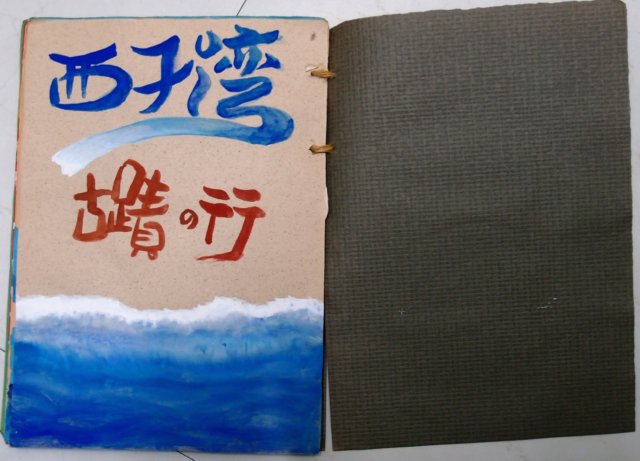 西子湾
古蹟の行